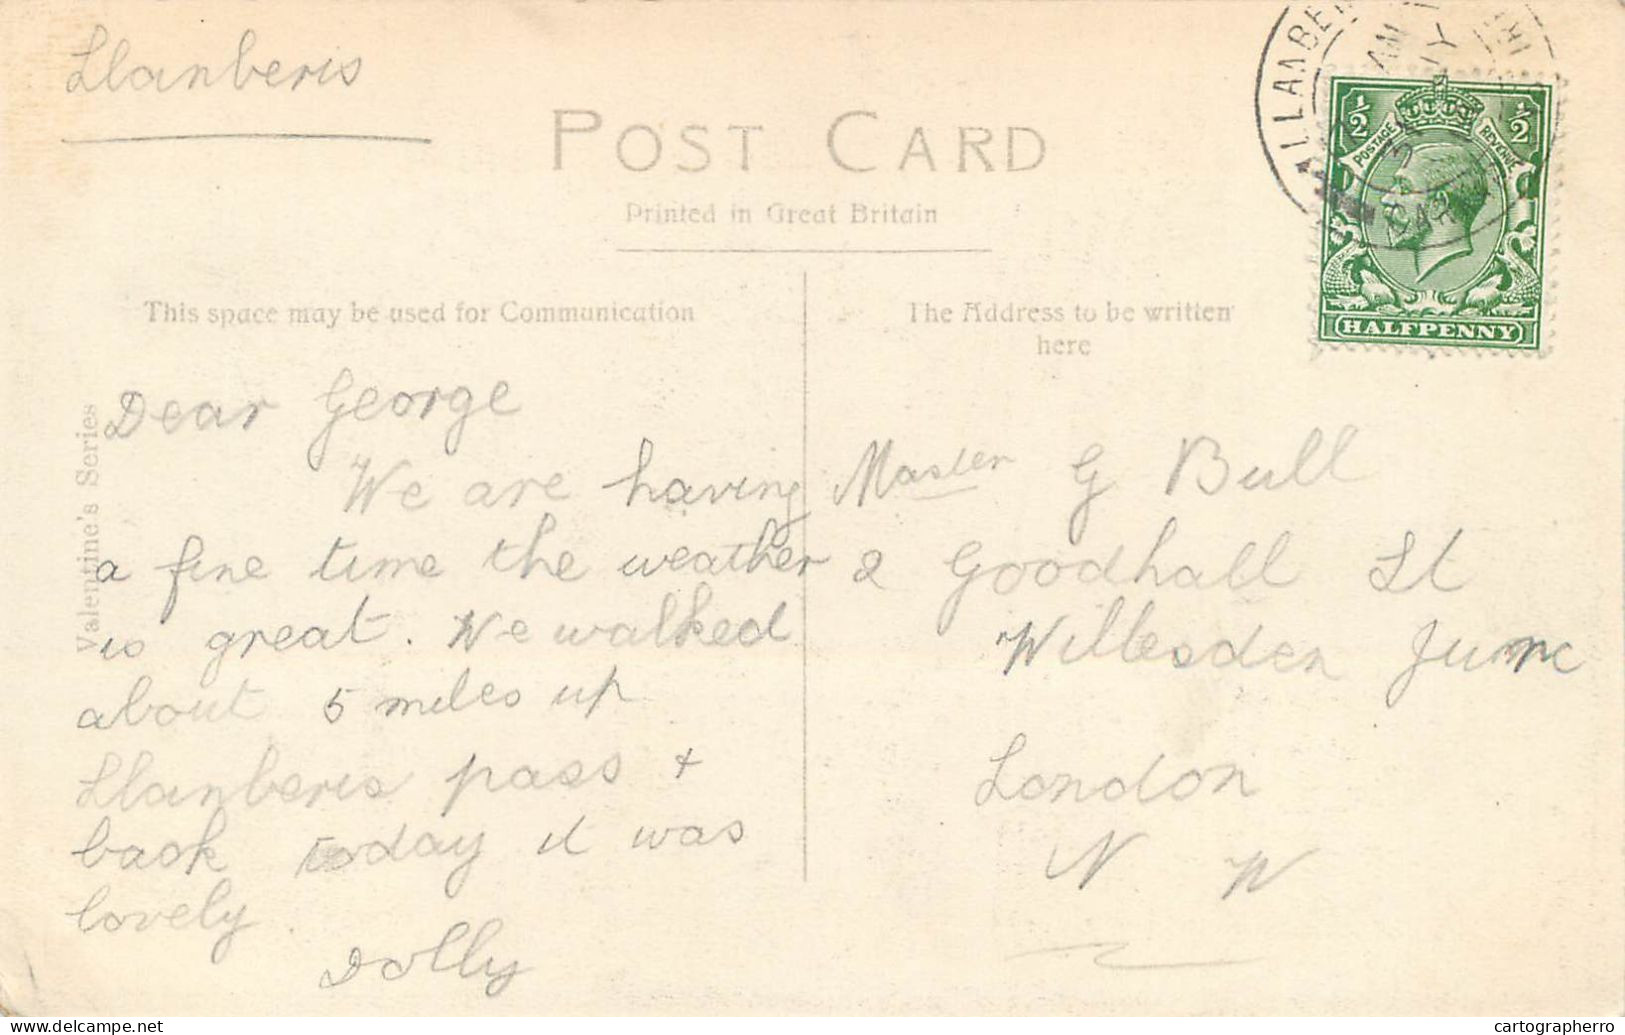 Llanberis
POST CARD
Printed in Great Britain
This space may be used for Communication
The Address to be written
here
Valentine's Series
Dear George
We are having
a fine time the weather
is great. We walked
about 5 miles up
Llanberis pass +
back today it was
lovely.
Dolly
Master G Bull
2 Goodhall St
Willesden Junc
London
N W
LLANBE
AM
½ ½
POSTAGE REVENUE
HALFPENNY
cartographerro